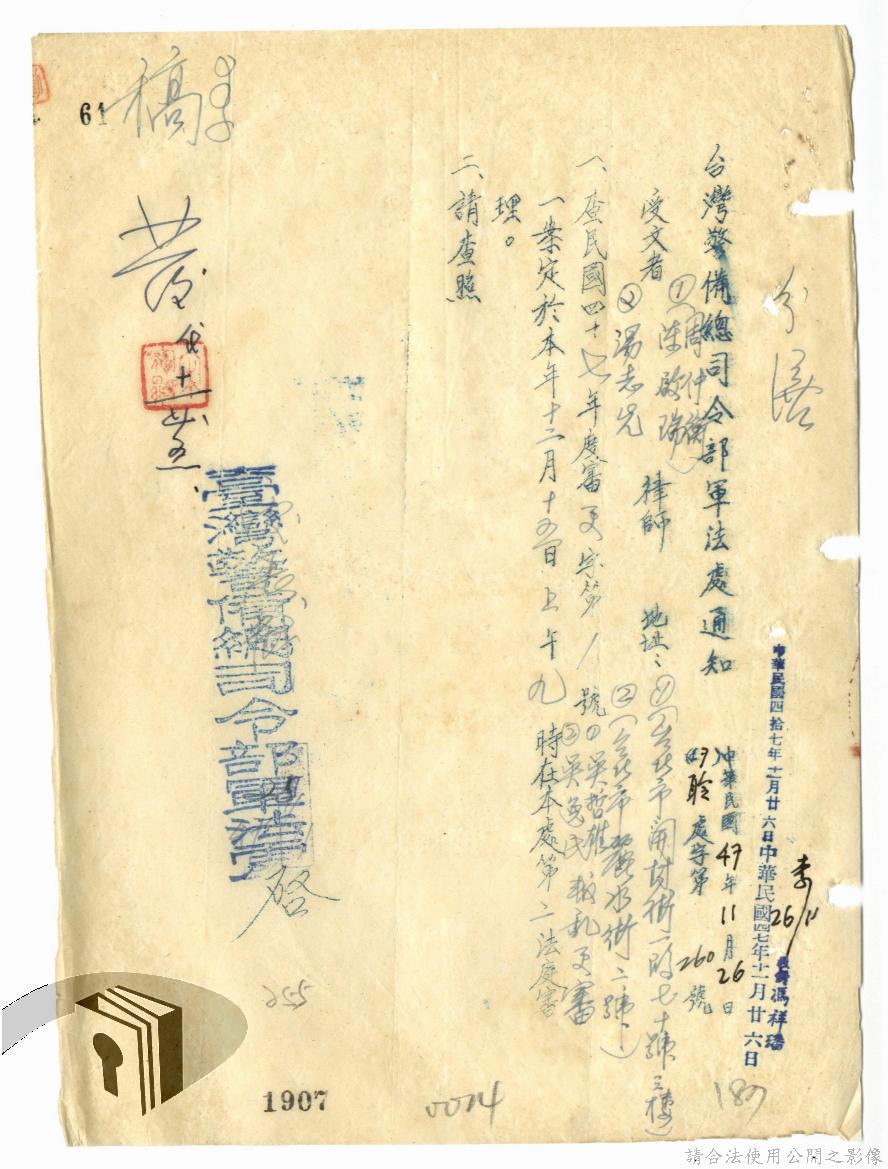 61
稿
分繕
台灣警備總司令部軍法處通知
中華民國四拾七年十一月廿六日
中華民國四七年十一月廿六日
馮祥瑞
李 26/11
中華民國47年11月26日
(47)聆處字第260號
受文者
①(周仲衡)
陳啟瑞
②湯志先
律師
地址:①(台北市開封街一段七十號三樓)
②(台北市麗水街二號)
一、查民國四十七年度審更字第1號①吳哲雄②吳逸民叛亂更審
一案定於本年十二月十五日上午九時在本處第二法庭審
理。
二、請查照
臺灣警備總司令部軍法處
啓
代
1907
0014
187
請合法使用公開之影像